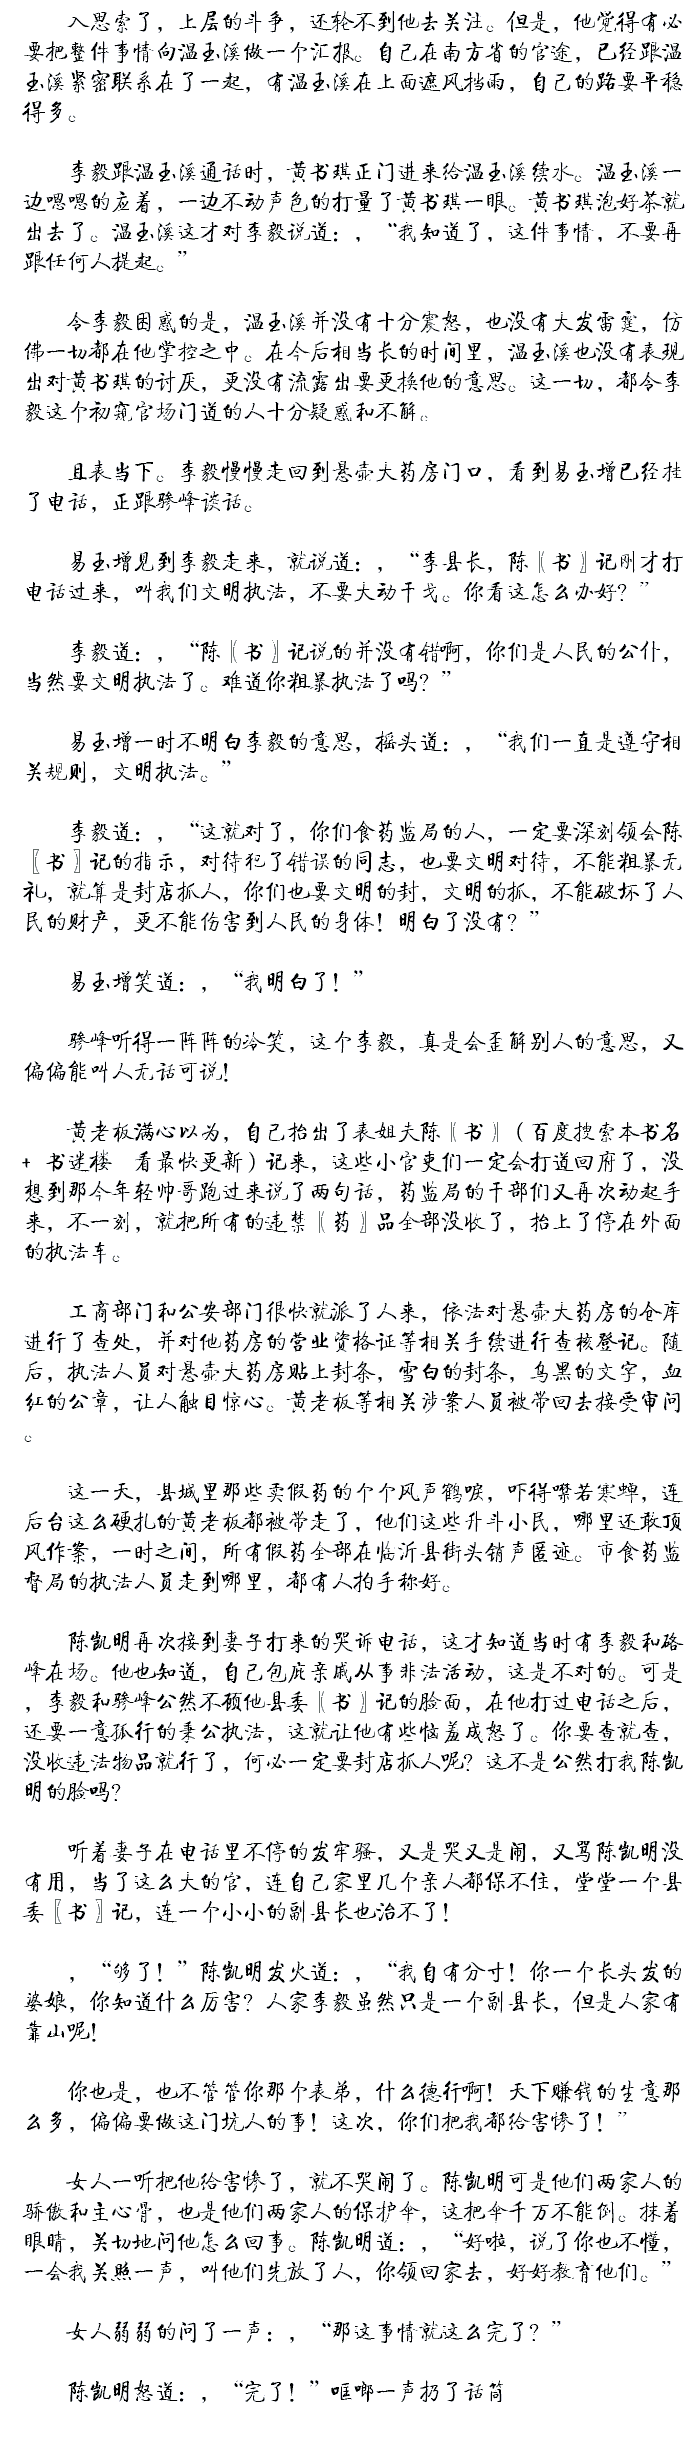 入思索了，上层的斗争，还轮不到他去关注。但是，他觉得有必
要把整件事情向温玉溪做一个汇报。自己在南方省的官途，已经跟温
玉溪紧密联系在了一起，有温玉溪在上面遮风挡雨，自己的路要平稳
得多。
李毅跟温玉溪通话时，黄书琪正门进来给温玉溪续水。温玉溪一
边嗯嗯的应着，一边不动声色的打量了黄书琪一眼。黄书琪泡好茶就
出去了。温玉溪这才对李毅说道：，“我知道了，这件事情，不要再
跟任何人提起。”
令李毅困惑的是，温玉溪并没有十分震怒，也没有大发雷霆，仿
佛一切都在他掌控之中。在今后相当长的时间里，温玉溪也没有表现
出对黄书琪的讨厌，更没有流露出要更换他的意思。这一切，都令李
毅这个初窥官场门道的人十分疑惑和不解。
且表当下。李毅慢慢走回到悬壶大药房门口，看到易玉增已经挂
了电话，正跟骖峰谈话。
易玉增见到李毅走来，就说道：，“李县长，陈〖书〗记刚才打
电话过来，叫我们文明执法，不要大动干戈。你看这怎么办好？”
李毅道：，“陈〖书〗记说的并没有错啊，你们是人民的公仆，
当然要文明执法了。难道你粗暴执法了吗？”
易玉增一时不明白李毅的意思，摇头道：，“我们一直是遵守相
关规则，文明执法。”
李毅道：，“这就对了，你们食药监局的人，一定要深刻领会陈
〖书〗记的指示，对待犯了错误的同志，也要文明对待，不能粗暴无
礼，就算是封店抓人，你们也要文明的封，文明的抓，不能破坏了人
民的财产，更不能伤害到人民的身体！明白了没有？”
易玉增笑道：，“我明白了！”
骖峰听得一阵阵的冷笑，这个李毅，真是会歪解别人的意思，又
偏偏能叫人无话可说！
黄老板满心以为，自己抬出了表姐夫陈〖书〗（百度搜索本书名
+ 书迷楼　看最快更新）记来，这些小官吏们一定会打道回府了，没
想到那今年轻帅哥跑过来说了两句话，药监局的干部们又再次动起手
来，不一刻，就把所有的违禁〖药〗品全部没收了，抬上了停在外面
的执法车。
工商部门和公安部门很快就派了人来，依法对悬壶大药房的仓库
进行了查处，并对他药房的营业资格证等相关手续进行查核登记。随
后，执法人员对悬壶大药房贴上封条，雪白的封条，乌黑的文字，血
红的公章，让人触目惊心。黄老板等相关涉案人员被带回去接受审问
。
这一天，县城里那些卖假药的个个风声鹤唳，吓得噤若寒蝉，连
后台这么硬扎的黄老板都被带走了，他们这些升斗小民，哪里还敢顶
风作案，一时之间，所有假药全部在临沂县街头销声匿迹。市食药监
督局的执法人员走到哪里，都有人拍手称好。
陈凯明再次接到妻子打来的哭诉电话，这才知道当时有李毅和骆
峰在场。他也知道，自己包庇亲戚从事非法活动，这是不对的。可是
，李毅和骖峰公然不顾他县委〖书〗记的脸面，在他打过电话之后，
还要一意孤行的秉公执法，这就让他有些恼羞成怒了。你要查就查，
没收违法物品就行了，何必一定要封店抓人呢？这不是公然打我陈凯
明的脸吗？
听着妻子在电话里不停的发牢骚，又是哭又是闹，又骂陈凯明没
有用，当了这么大的官，连自己家里几个亲人都保不住，堂堂一个县
委〖书〗记，连一个小小的副县长也治不了！
，“够了！”陈凯明发火道：，“我自有分寸！你一个长头发的
婆娘，你知道什么厉害？人家李毅虽然只是一个副县长，但是人家有
靠山呢！
你也是，也不管管你那个表弟，什么德行啊！天下赚钱的生意那
么多，偏偏要做这门坑人的事！这次，你们把我都给害惨了！”
女人一听把他给害惨了，就不哭闹了。陈凯明可是他们两家人的
骄傲和主心骨，也是他们两家人的保护伞，这把伞千万不能倒。抹着
眼睛，关切地问他怎么回事。陈凯明道：，“好啦，说了你也不懂，
一会我关照一声，叫他们先放了人，你领回家去，好好教育他们。”
女人弱弱的问了一声：，“那这事情就这么完了？”
陈凯明怒道：，“完了！”哐啷一声扔了话筒